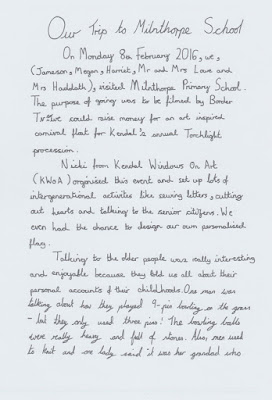 Our Trip to Milnthorpe School
On Monday 8th February 2016, we,
(Jameson, Megan, Harriet, Mr and Mrs Lave and
Mrs Haddath), visited Milnthorpe Primary School.
The purpose of going was to be filmed by Border
TV. We could raise money for an art inspired
carnival float for Kendal's annual Torchlight
procession.
Nicki from Kendal Windows On Art
(KWoA) organised this event and set up lots of
intergenerational activites like sewing letters, cutting
out hearts and talking to the senior citizens. We
even had the chance to design our own personalised
flag.
Talking to the older people was really interesting
and enjoyable because they told us all about their
personal accounts of their childhoods. One man was
talking about how they played 9-pin bowling on the grass
- but they only used three pins! The bowling balls
were really heavy and full of stones. Also, men used
to knit and one lady said it was her grandad who